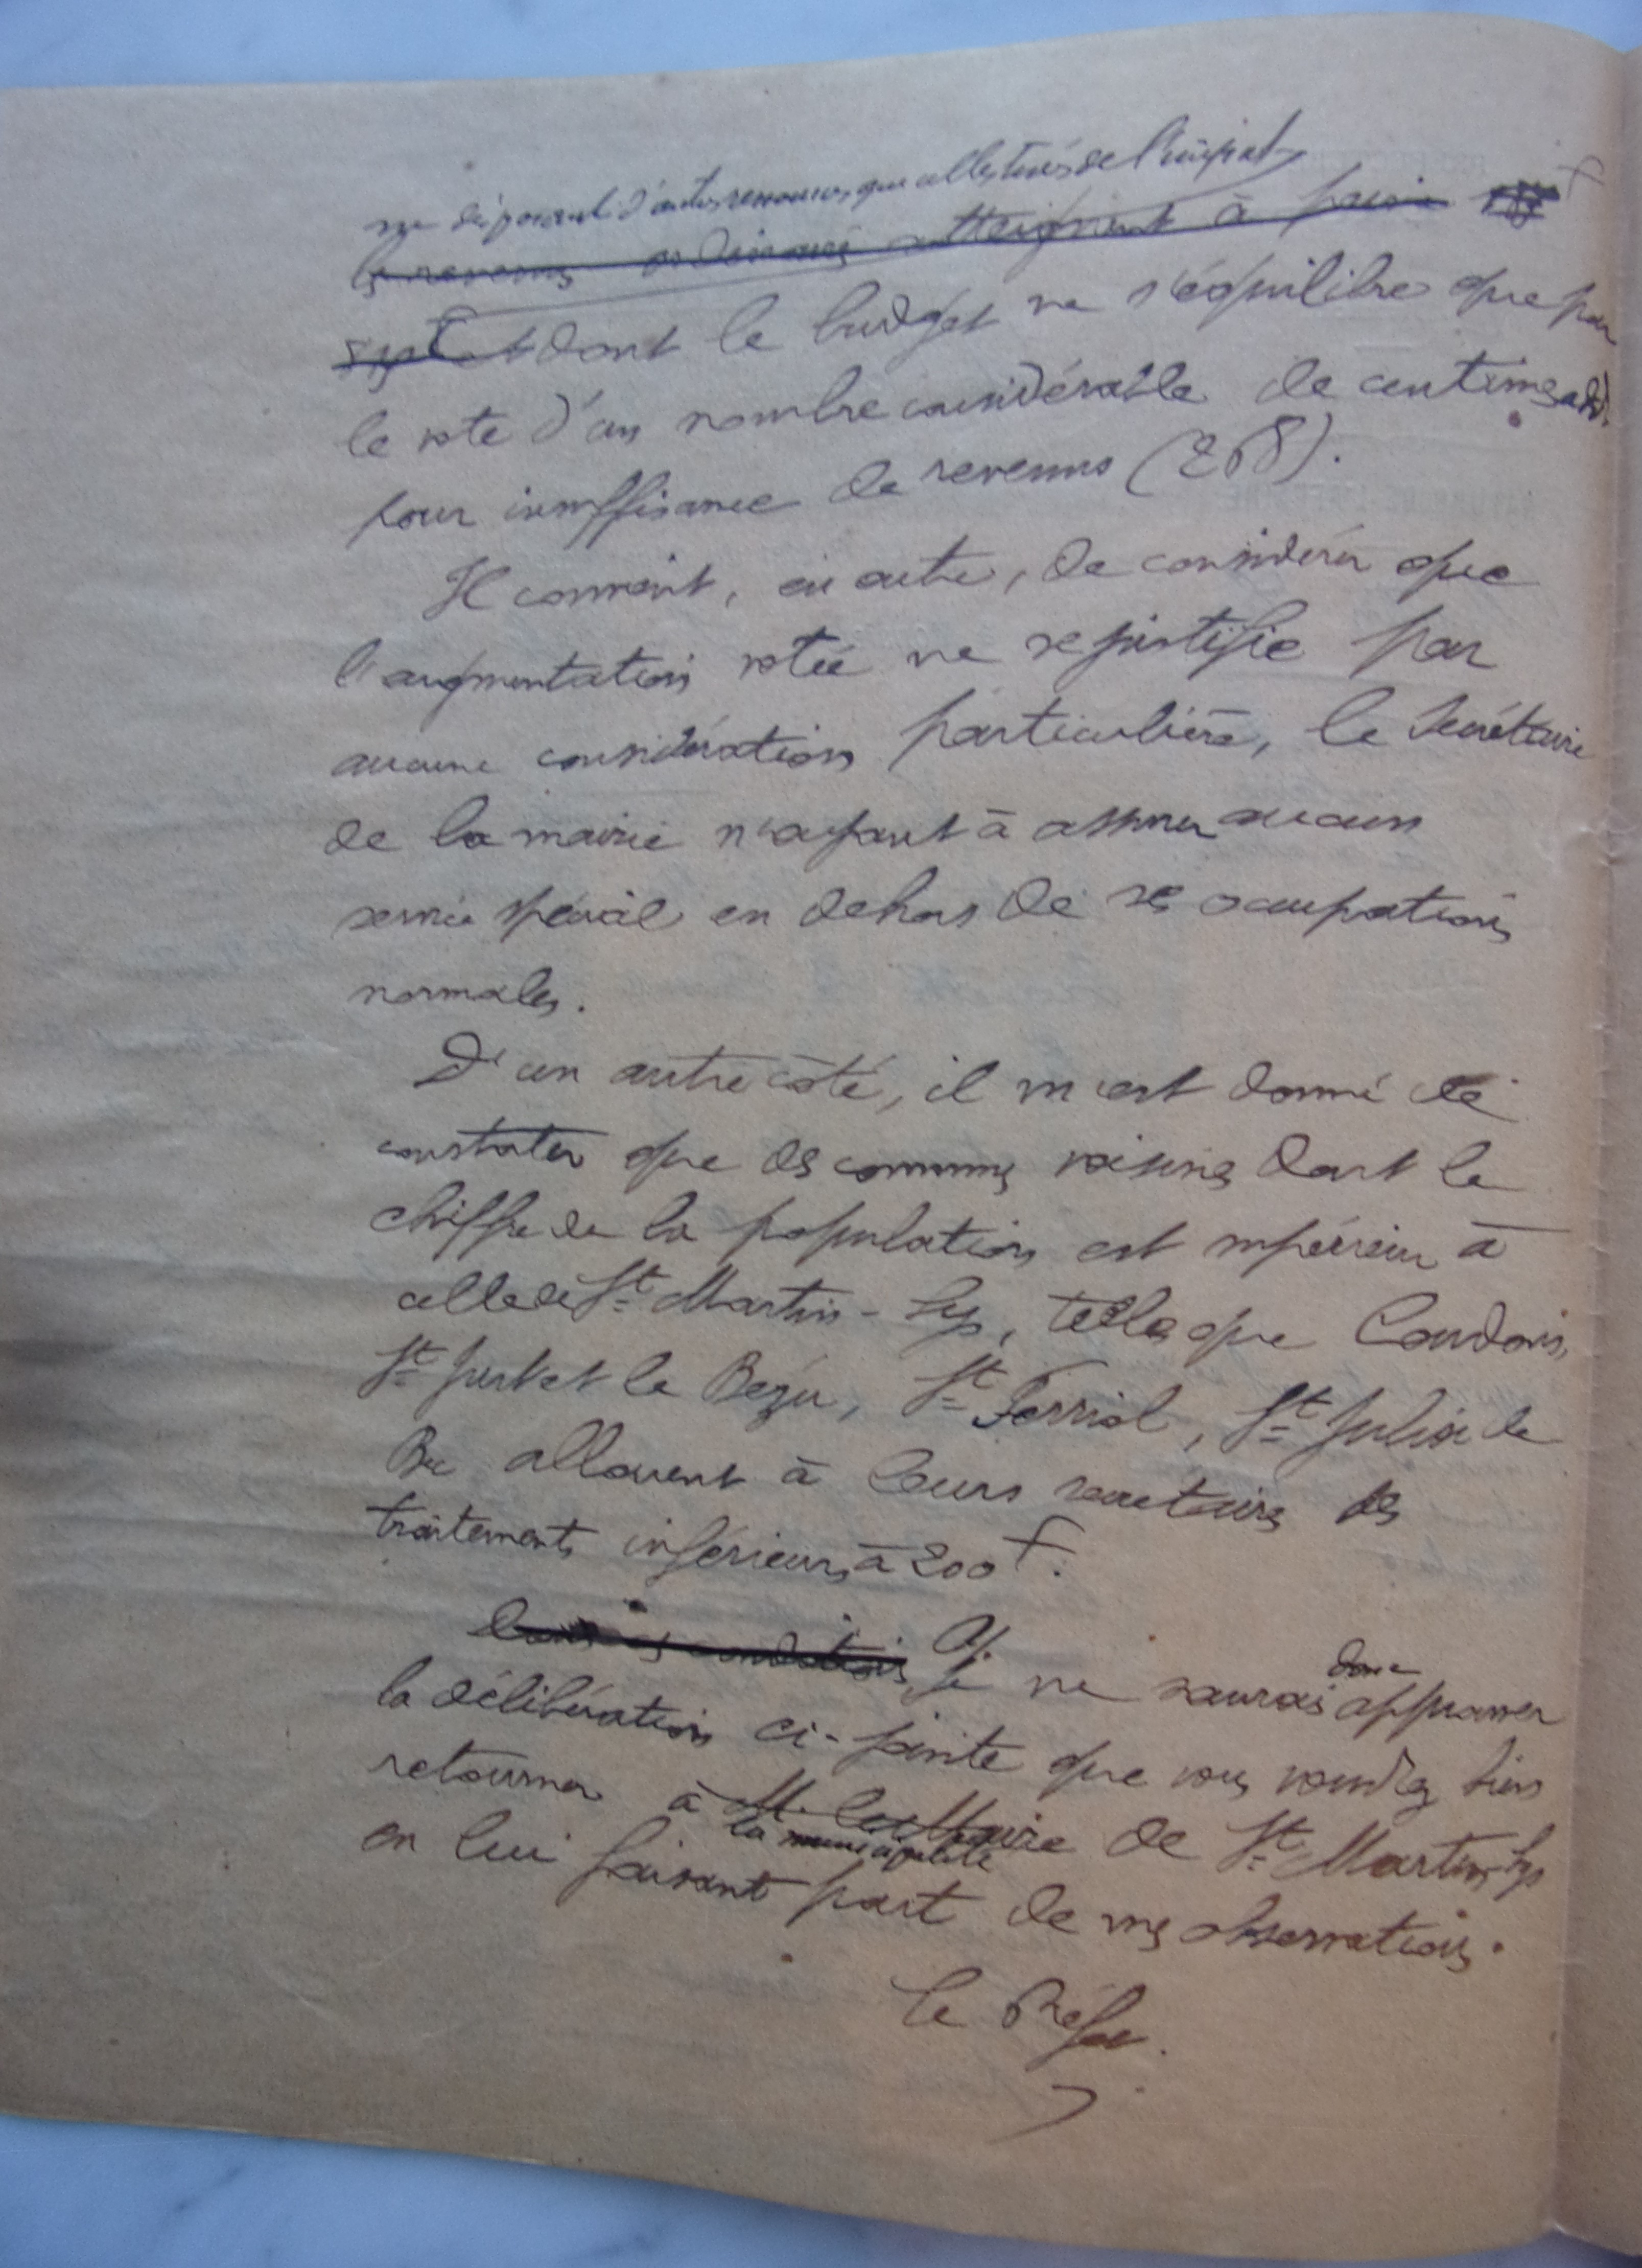 ne disposant d'autres ressources que celles tirées de l'impôt
les revenus ordinaires atteignent à peine
et dont le budget ne s'équilibre que par
le vote d'un nombre considérable de centimes add.
pour insuffisance de revenus (268).
Il convient, en outre, de considérer que
l'augmentation votée ne se justifie par
aucune considération particulière, le Secrétaire
de la mairie n'ayant à assurer aucun
service spécial en dehors de ses occupations
normales.
D'un autre côté, il m'est donné de
constater que des communes voisines dont le
chiffre de la population est supérieur à
celle de St Martin-Lys, telles que Coudons,
St Just et le Bézu, St Ferriol, St Julia de
Bec allouent à leurs secrétaires des
traitements inférieurs à 200 f.
Dans ces conditions, Je ne saurais donc approuver
la délibération ci-jointe que vous voudrez bien
retourner à M. le Maire de St Martin-Lys
la municipalité
en lui faisant part de mes observations.
Le Préfet.